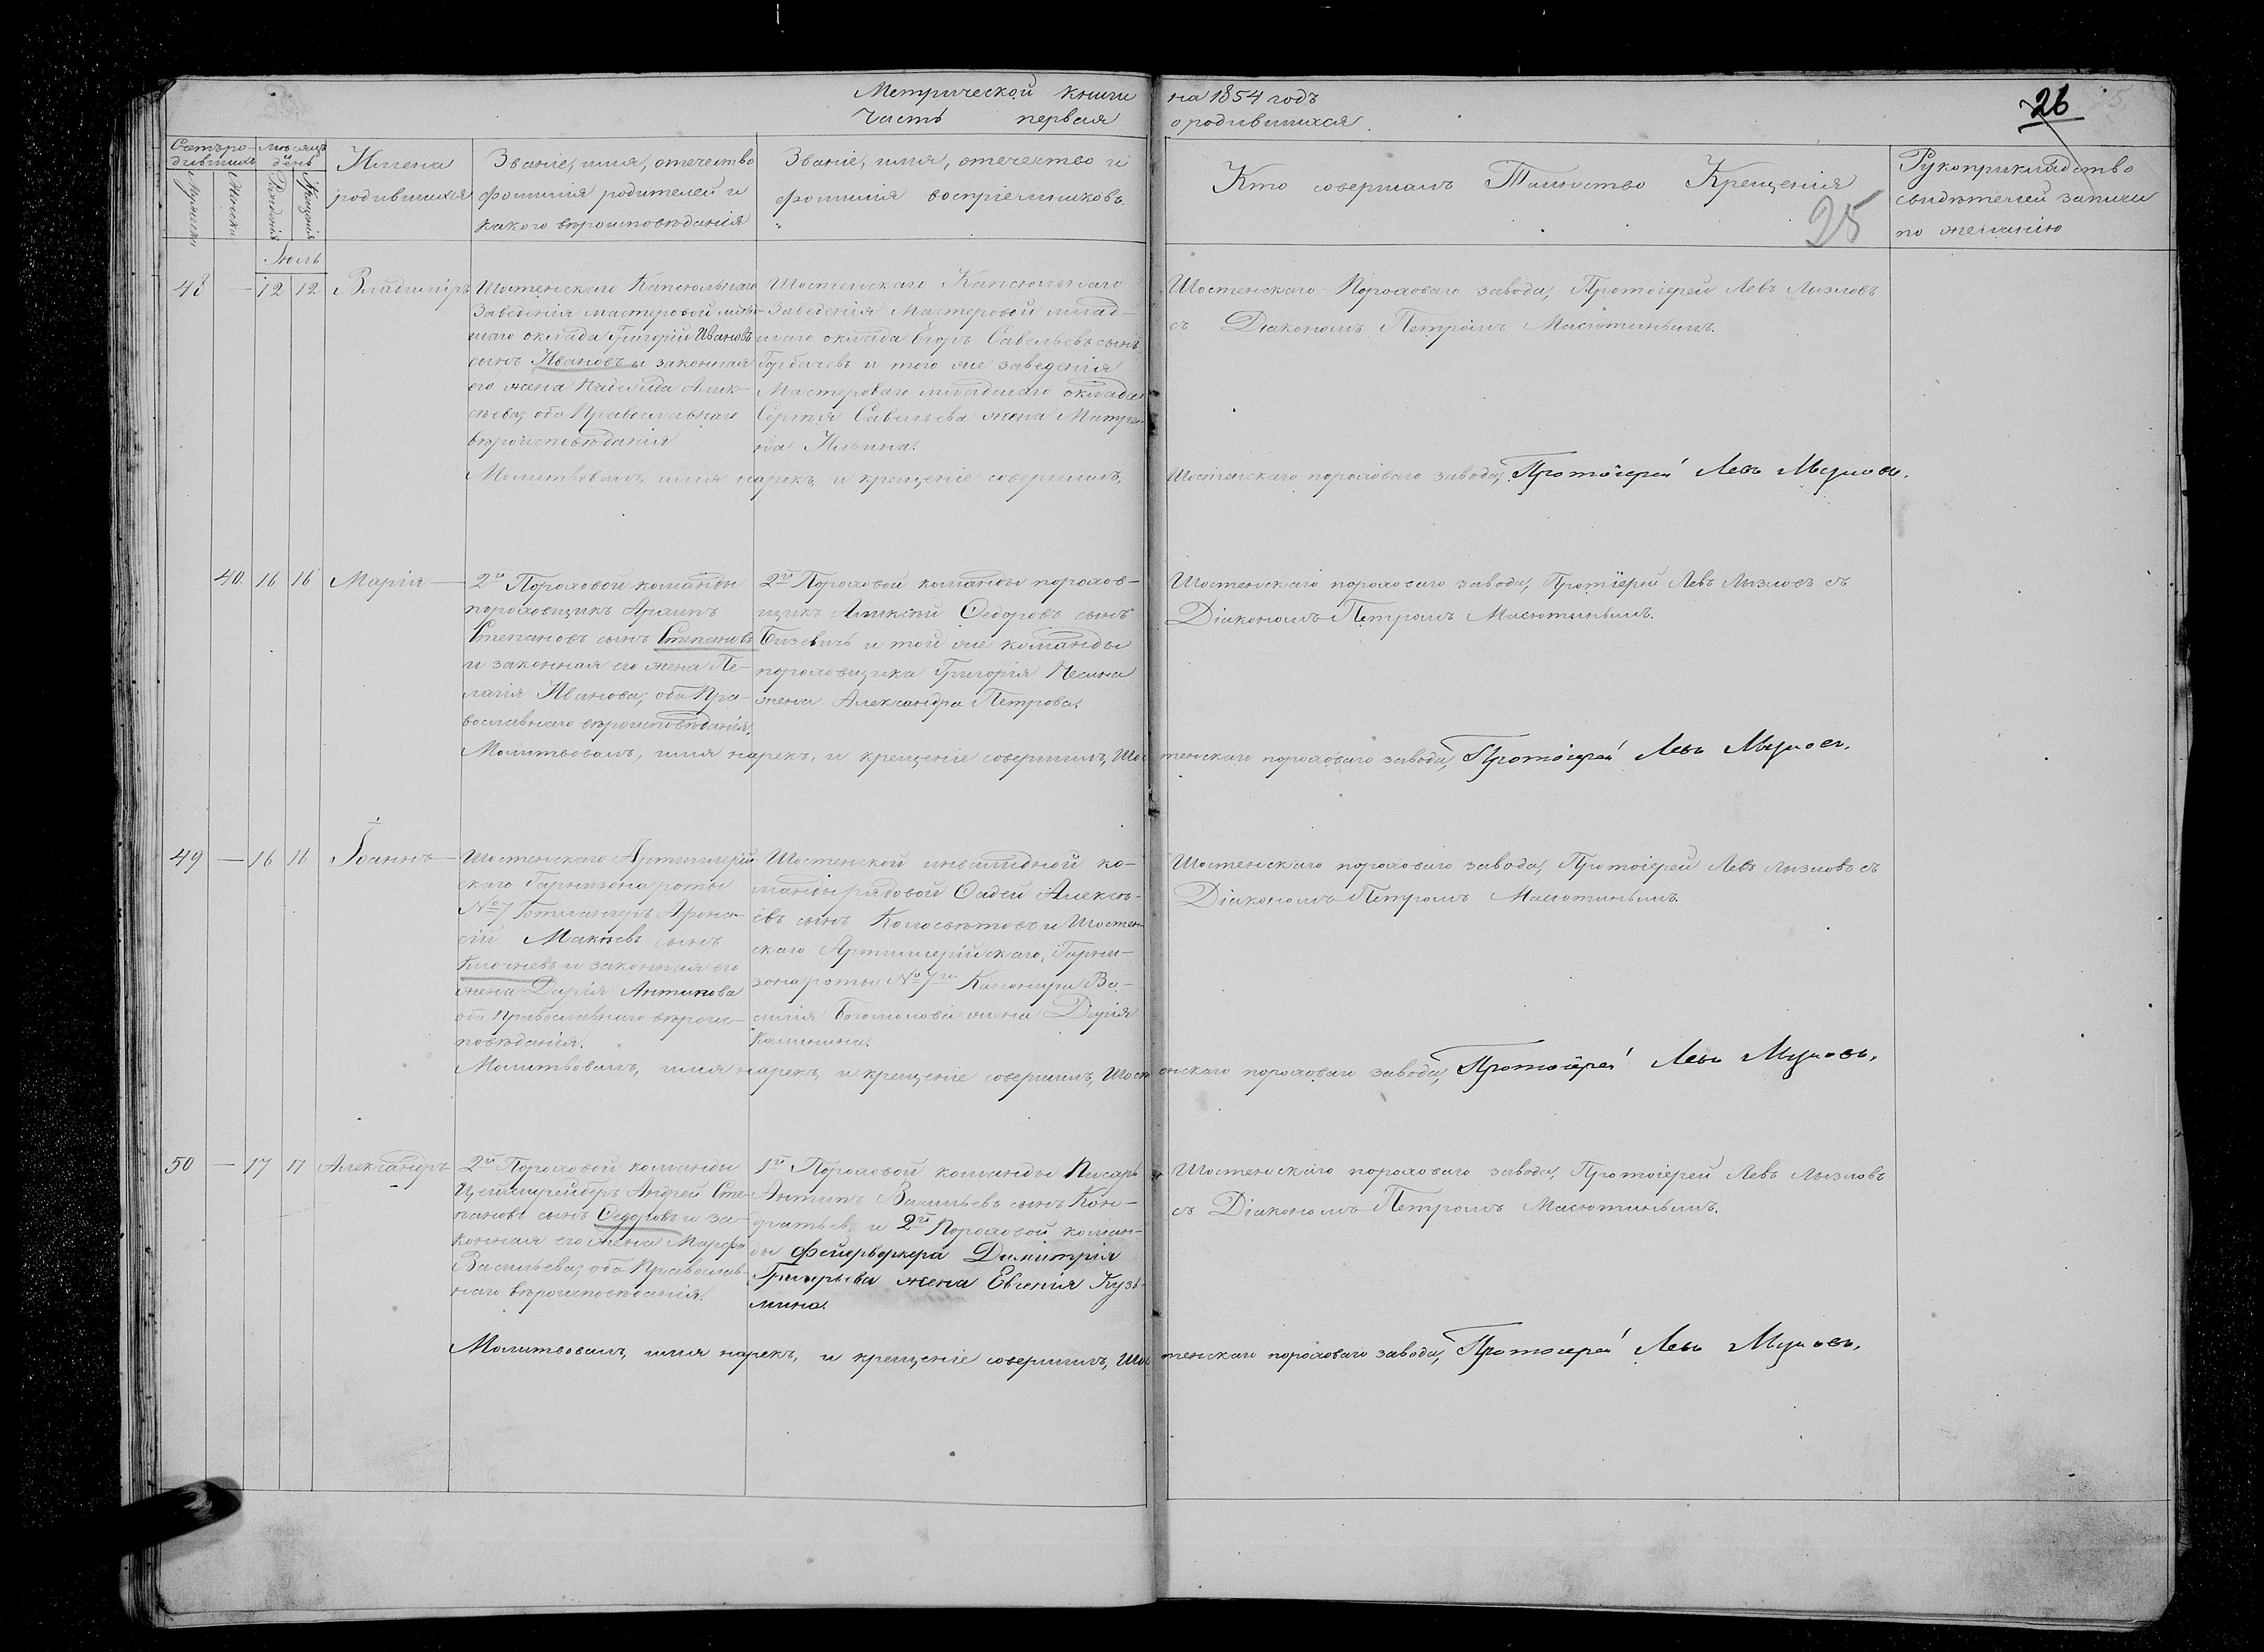 Метрической книги на 1854 годъ
Часть первая о родившихся
26
25
Счетъ родившихся
Мужеска
Женска
Мѣсяцъ и день
Рожденія
Крещенія
Имена
родившихся
Званіе, имя, отчество
фамилія родителей и
какого вѣроисповѣданія
Званіе, имя, отчество и
фамилія воспріемниковъ.
Кто совершалъ Таинство Крещенія
Рукоприкладство
свидѣтелей записи
по желанію
Іюль
48 — 12 12 Владиміръ
Шостенскаго Капсюльнаго
Заведенія мастеровой млад-
шаго оклада Григорій Ивановъ
сынъ Ивановъ и законная
его жена Надежда Алек-
сѣева, оба Православнаго
вѣроисповѣданія
Шостенскаго Капсюльнаго
Заведенія Мастеровой млад-
шаго оклада Егоръ Савельевъ сынъ
Горбачевъ и того же заведенія
Мастероваго младшаго оклада
Сергія Савельева жена Матре-
на Ильина.
Шостенскаго Пороховаго завода, Протоіерей Левъ Лызловъ
съ Діакономъ Петромъ Масютинымъ.
Молитвовалъ, имя нарекъ и крещеніе совершилъ, Шостенскаго пороховаго завода, Протоіерей Левъ Лызловъ.
40 16 16 Марія
2й Пороховой команды
пороховщикъ Архипъ
Степановъ сынъ Степановъ
и законная его жена Пе-
лагія Иванова, оба Пра-
вославнаго вѣроисповѣданія.
2й Пороховой команды порохов-
щикъ Алексѣй Ѳедоровъ сынъ
и той же команды
пороховщика Григорія
жена Александра Петрова.
Шостенскаго пороховаго завода, Протоіерей Левъ Лызловъ съ
Діакономъ Петромъ Масютинымъ.
Молитвовалъ, имя нарекъ, и крещеніе совершилъ, Шостенскаго пороховаго завода, Протоіерей Левъ Лызловъ.
49 — 16 16 Іоаннъ
Шостенскаго Артиллерій-
скаго Гарнизона роты
№ 7 Гантлангеръ Афана-
сій Макѣевъ сынъ
Клочневъ и законная его
жена Дарія Антипова
оба Православнаго вѣроис-
повѣданія.
Шостенской инвалидной ко-
манды рядовой Фадей Алексѣ-
евъ сынъ и Шостен-
скаго Артиллерійскаго Гарни-
зона роты № 7й Канонира Ва-
силія Богомолова жена Дарія
Калинина.
Шостенскаго пороховаго завода, Протоіерей Левъ Лызловъ съ
Діакономъ Петромъ Масютинымъ.
Молитвовалъ, имя нарекъ, и крещеніе совершилъ, Шостенскаго пороховаго завода, Протоіерей Левъ Лызловъ.
50 — 17 17 Александръ
2й Пороховой команды
Цейтшрейберъ Андрей Сте-
пановъ сынъ Ѳедоровъ и за-
конная его жена Марфа
Васильева, оба Православ-
наго вѣроисповѣданія.
1й Пороховой команды Писарь
Антипъ Васильевъ сынъ Кон-
дратьевъ и 2й Пороховой коман-
ды Фейерверкера Димитрія
Григорьева жена Евгенія Кузь-
мина.
Шостенскаго пороховаго завода, Протоіерей Левъ Лызловъ
съ Діакономъ Петромъ Масютинымъ.
Молитвовалъ, имя нарекъ, и крещеніе совершилъ, Шостенскаго пороховаго завода, Протоіерей Левъ Лызловъ.